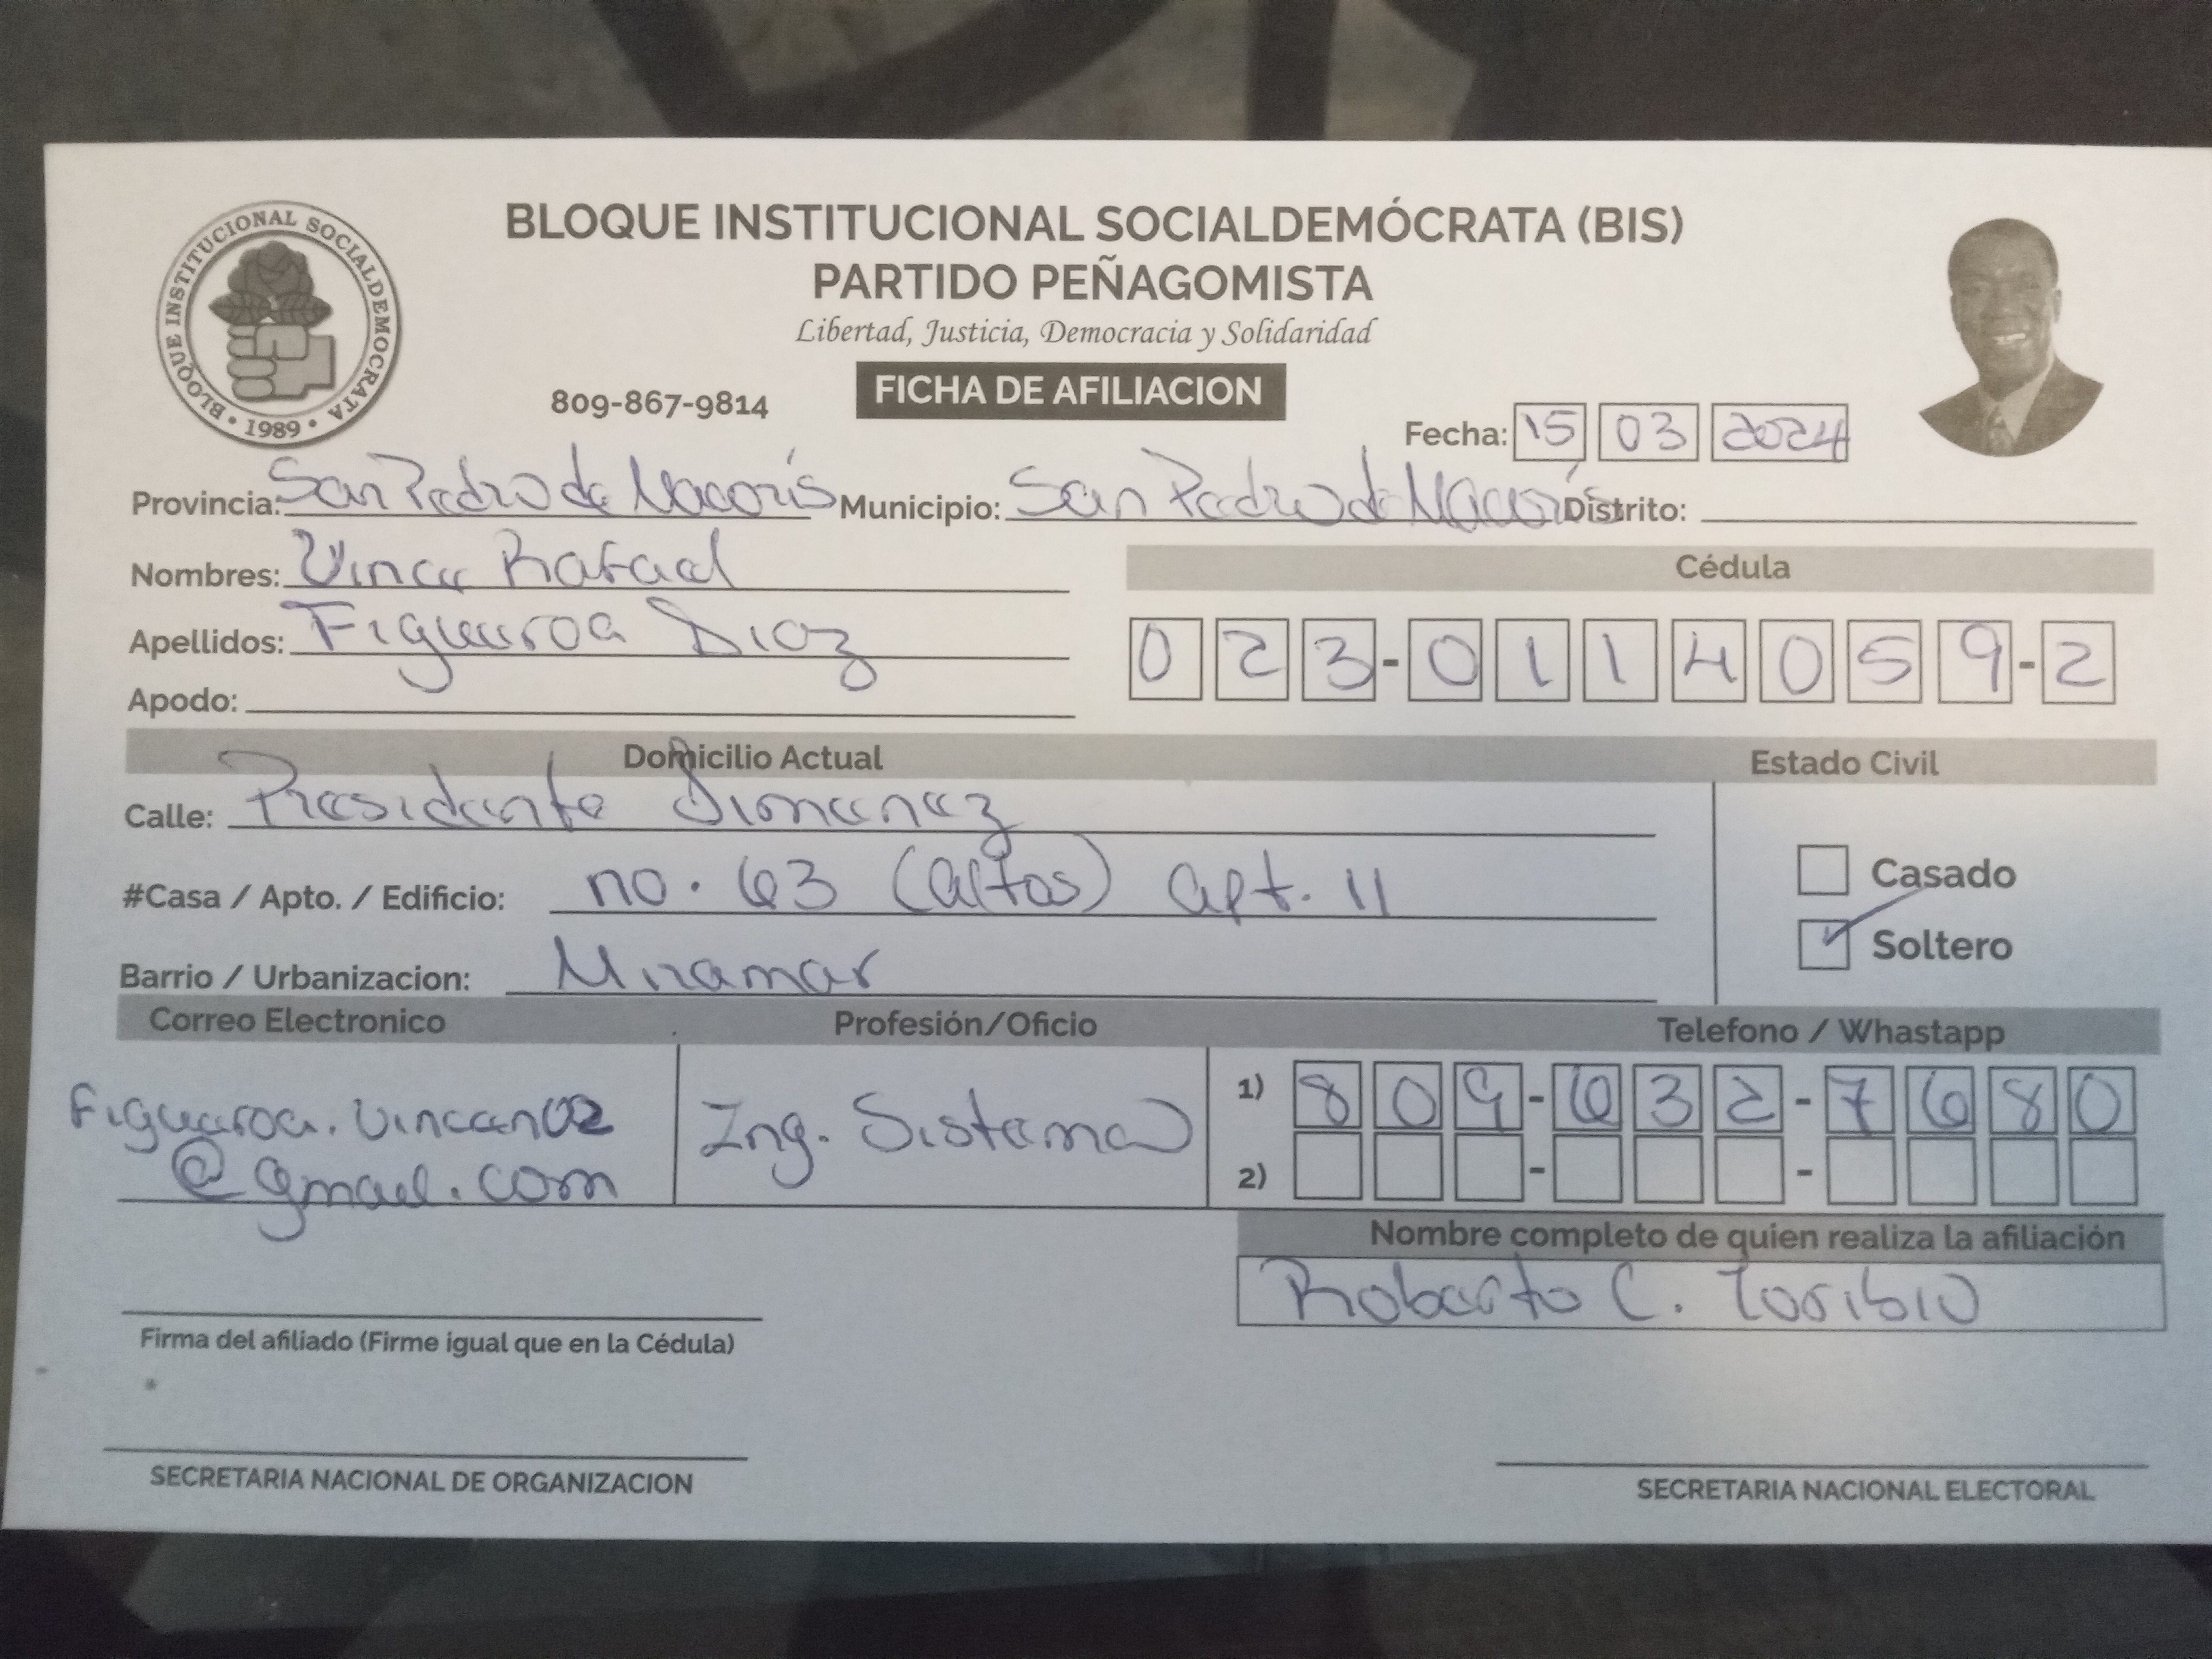 BLOQUE INSTITUCIONAL SOCIALDEMÓCRATA (BIS)
PARTIDO PEÑAGOMISTA
Libertad, Justicia, Democracia y Solidaridad
BLOQUE INSTITUCIONAL SOCIALDEMOCRATA • 1989 •
809-867-9814
FICHA DE AFILIACION
Fecha: 15 03 2024
Provincia: San Pedro de Macorís Municipio: San Pedro de Macorís Distrito:
Nombres: Vince Rafael
Cédula
Apellidos: Figueroa Diaz
023-0114059-2
Apodo:
Domicilio Actual Estado Civil
Calle: Presidente Jimenez
Casado
#Casa / Apto. / Edificio: no. 63 (altos) apt. 11
Soltero
Barrio / Urbanizacion: Miramar
Correo Electronico Profesión/Oficio Telefono / Whastapp
Figueroa.
@gmail.com
Ing. Sistema
1) 809-632-7680
2) - -
Nombre completo de quien realiza la afiliación
Roberto C. Toribio
Firma del afiliado (Firme igual que en la Cédula)
SECRETARIA NACIONAL DE ORGANIZACION
SECRETARIA NACIONAL ELECTORAL